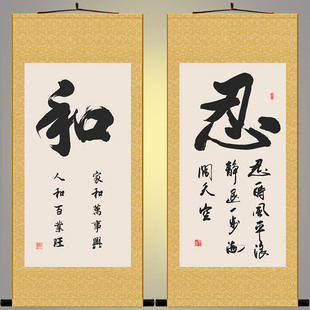 和
家和萬事興
人和百業旺
忍
忍一時風平浪
靜退一步海
闊天空